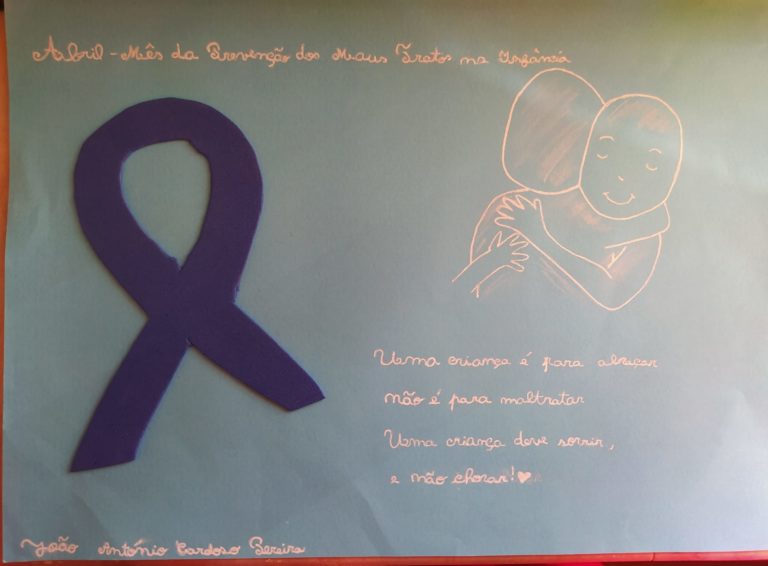 Abril - Mês da Prevenção dos Maus Tratos na Infância
Uma criança é para abraçar
não é para maltratar
Uma criança deve sorrir,
e não chorar!♥
João António Cardoso Pereira